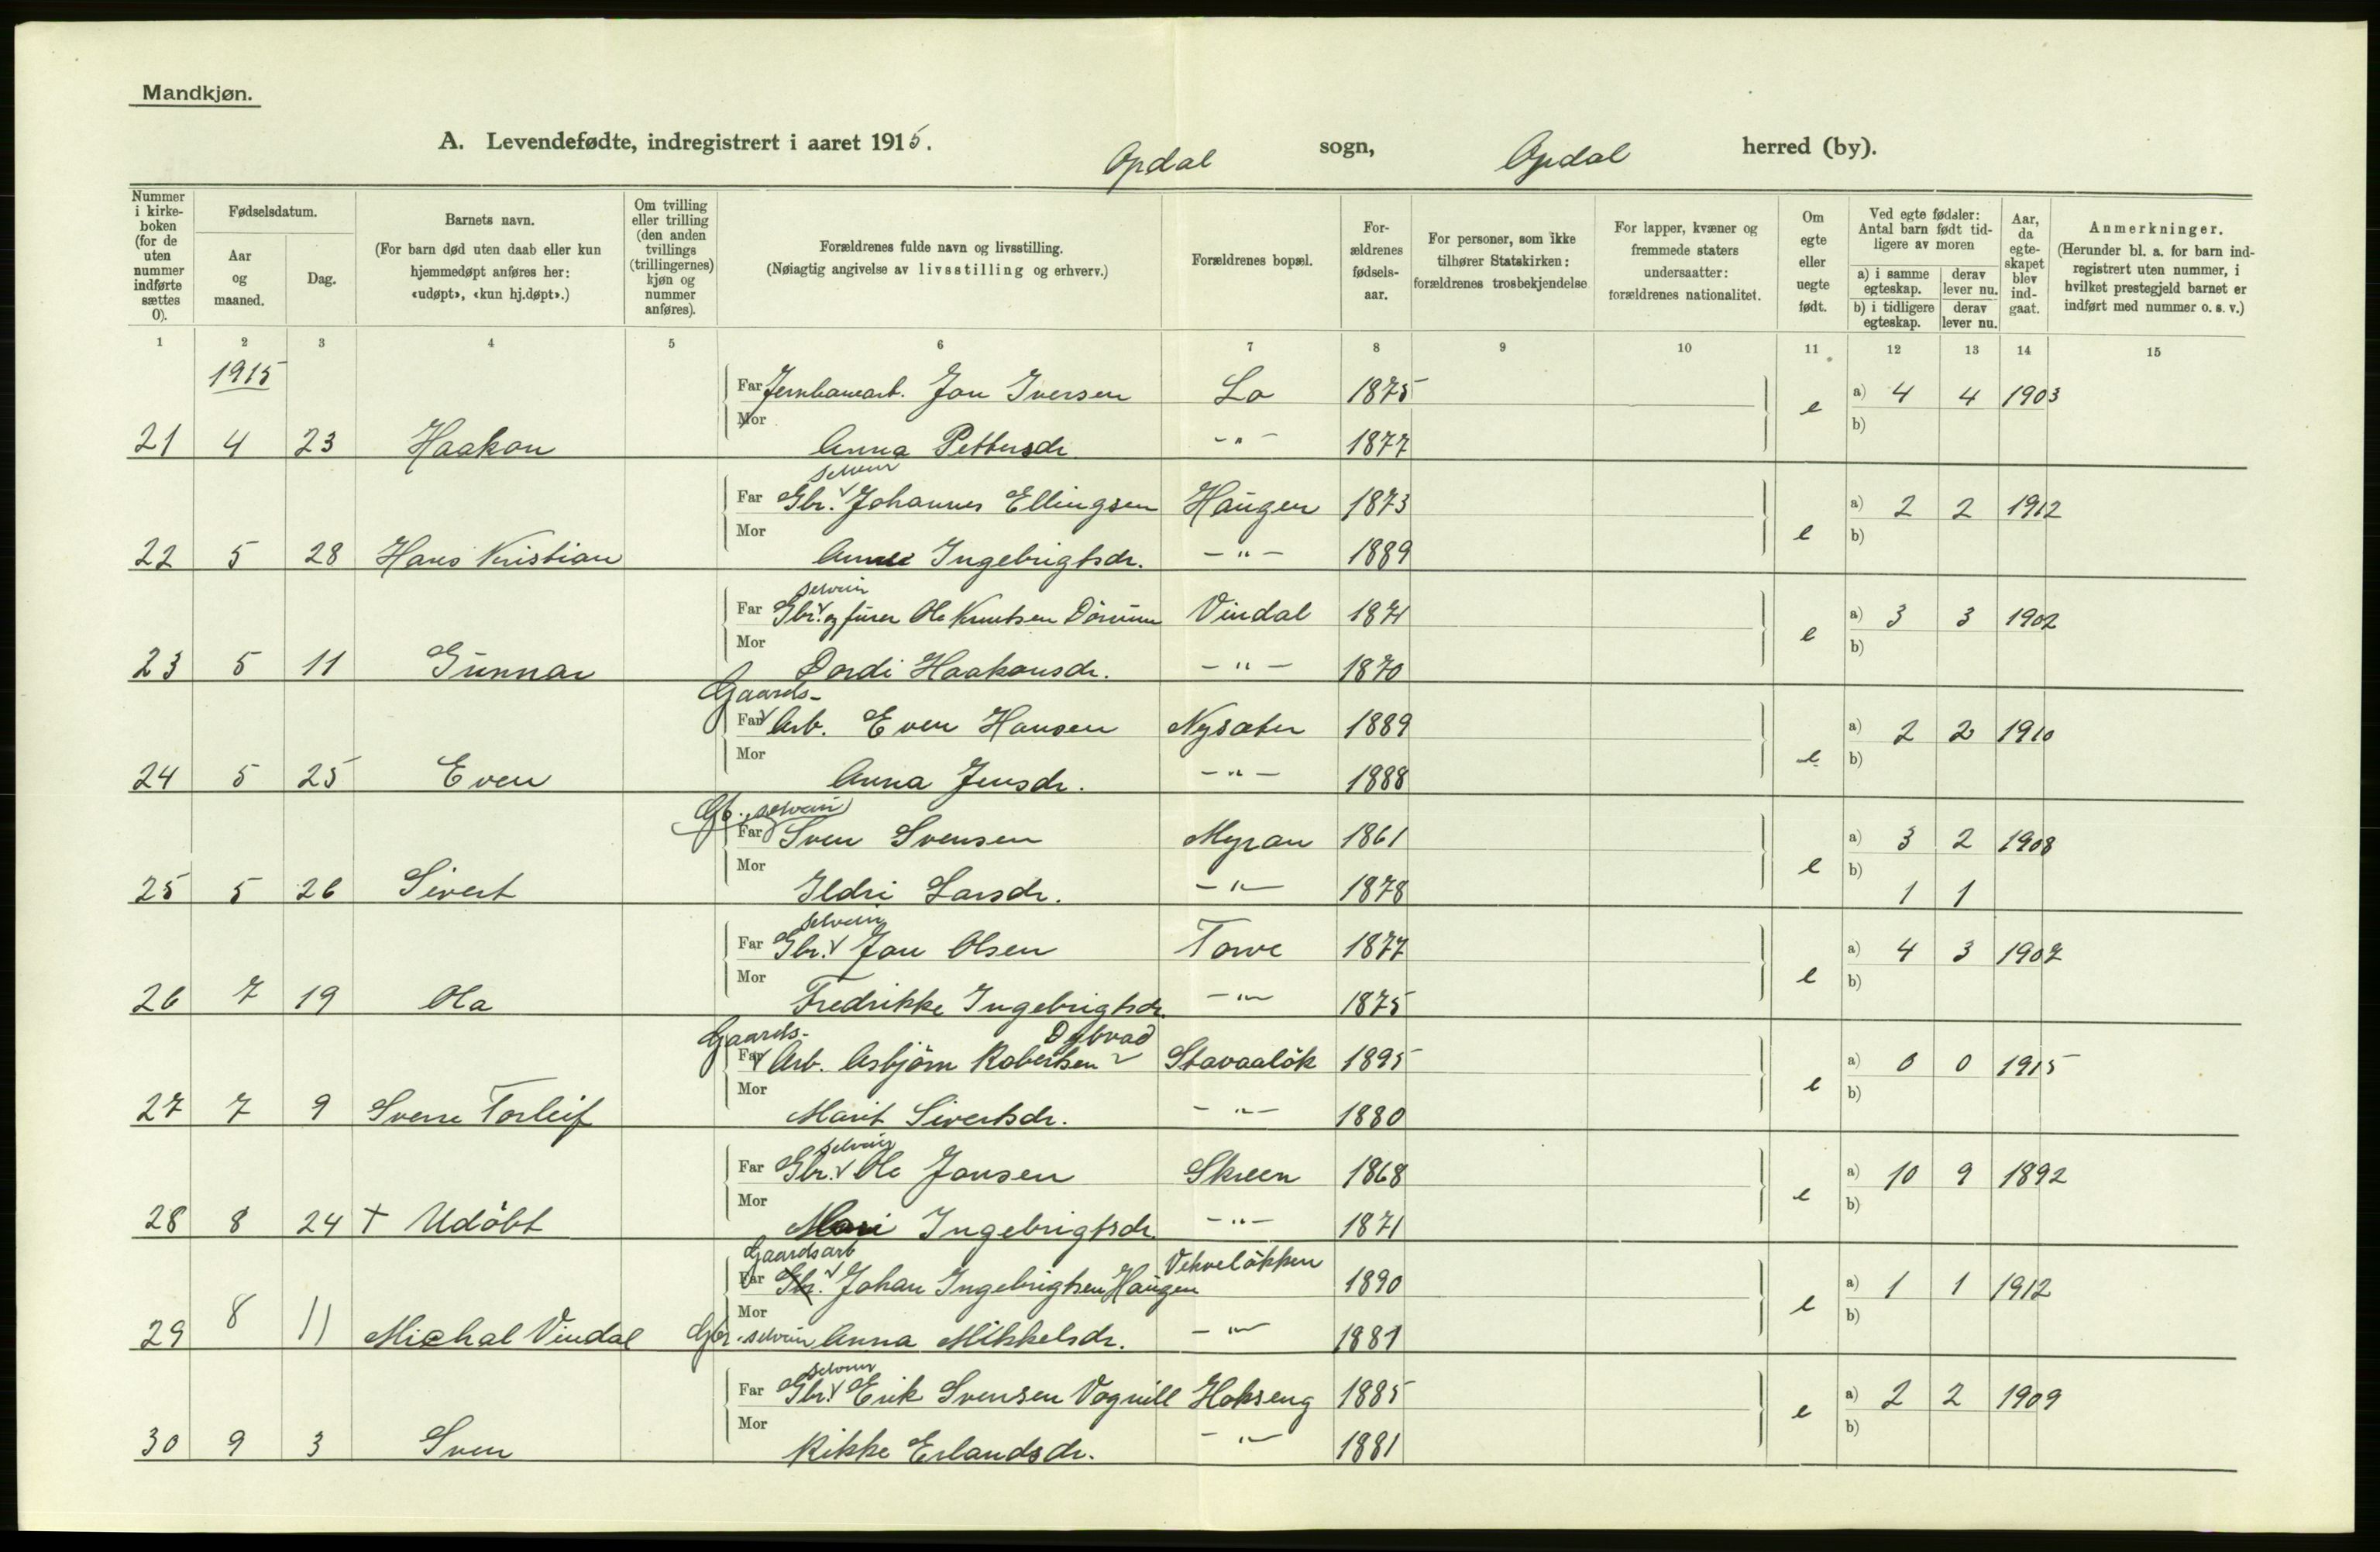 Mandkjøn.
A. Levendefødte, indregistrert i aaret 1915. Opdal sogn, Opdal herred (by).
Nummer i kirke-boken (for de uten nummer indførte sættes 0).
Fødselsdatum.
Aar og maaned.
Dag.
Barnets navn.
(For barn død uten daab eller kun hjemmedøpt anføres her: «udøpt», «kun hj.døpt».)
Om tvilling eller trilling (den anden tvillings (trillingernes) kjøn og nummer anføres).
Forældrenes fulde navn og livsstilling.
(Nøiagtig angivelse av livsstilling og erhverv.)
Forældrenes bopæl.
For-ældrenes fødsels-aar.
For personer, som ikke tilhører Statskirken: forældrenes trosbekjendelse
For lapper, kvæner og fremmede staters undersaatter: forældrenes nationalitet.
Om egte eller uegte født.
Ved egte fødsler: Antal barn født tid-ligere av moren
a) i samme egteskap.
derav lever nu.
b) i tidligere egteskap.
derav lever nu.
Aar, da egte-skapet blev ind-gaat.
Anmerkninger.
(Herunder bl. a. for barn ind-registrert uten nummer, i hvilket prestegjeld barnet er indført med nummer o. s. v.)
1 2 3 4 5 6 7 8 9 10 11 12 13 14 15
1915
Far Jernbanearb. Jon Iversen Lo 1875 e a) 4 4 1903
Mor b)
21 4 23 Haakon Anna Pettersdr. -"- 1877
selveier
Far Gbr. Johannes Ellingsen Haugen 1873 e a) 2 2 1912
Mor b)
22 5 28 Hans Kristian Anne Ingebrigtsdr. -"- 1889
selveier
Far Gbr. og furer Ole Knutsen Dörum Vindal 1871 e a) 3 3 1902
Mor b)
23 5 11 Gunnar Dordi Haakonsdr. -"- 1870
Gaards-
Far Arb. Even Hansen Nysæter 1889 e a) 2 2 1910
Mor b)
24 5 25 Even Anna Jensdr. -"- 1888
Gb. selveier
Far Sven Svensen Myran 1861 e a) 3 2 1908
Mor b)
25 5 26 Sivert Ildri Larsdr. -"- 1878 1 1
selveier
Far Gbr. Jon Olsen Torve 1877 e a) 4 3 1902
Mor b)
26 7 19 Ola Fredrikke Ingebrigtsdr. -"- 1875
Gaards- Dybvad
Far Arb. Asbjörn Robertsen Stavaalök 1895 e a) 0 0 1915
Mor b)
27 7 9 Sverre Torleif Marit Sivertsdr. -"- 1880
selveier
Far Gbr. Ole Jonsen Skreen 1868 e a) 10 9 1892
Mor b)
28 8 24 † Udöbt Mari Ingebrigtsdr. -"- 1871
Gaardsarb Vekvelökken
Far Gbr. Johan Ingebrigtsen Haugen 1890 e a) 1 1 1912
Mor b)
29 8 11 Michal Vindal Gbr. selveier Anna Mikkelsdr. -"- 1881
selveier
Far Gbr. Erik Svensen Vognill Hokseng 1885 e a) 2 2 1909
Mor b)
30 9 3 Sven Rikke Erlandsdr. -"- 1881